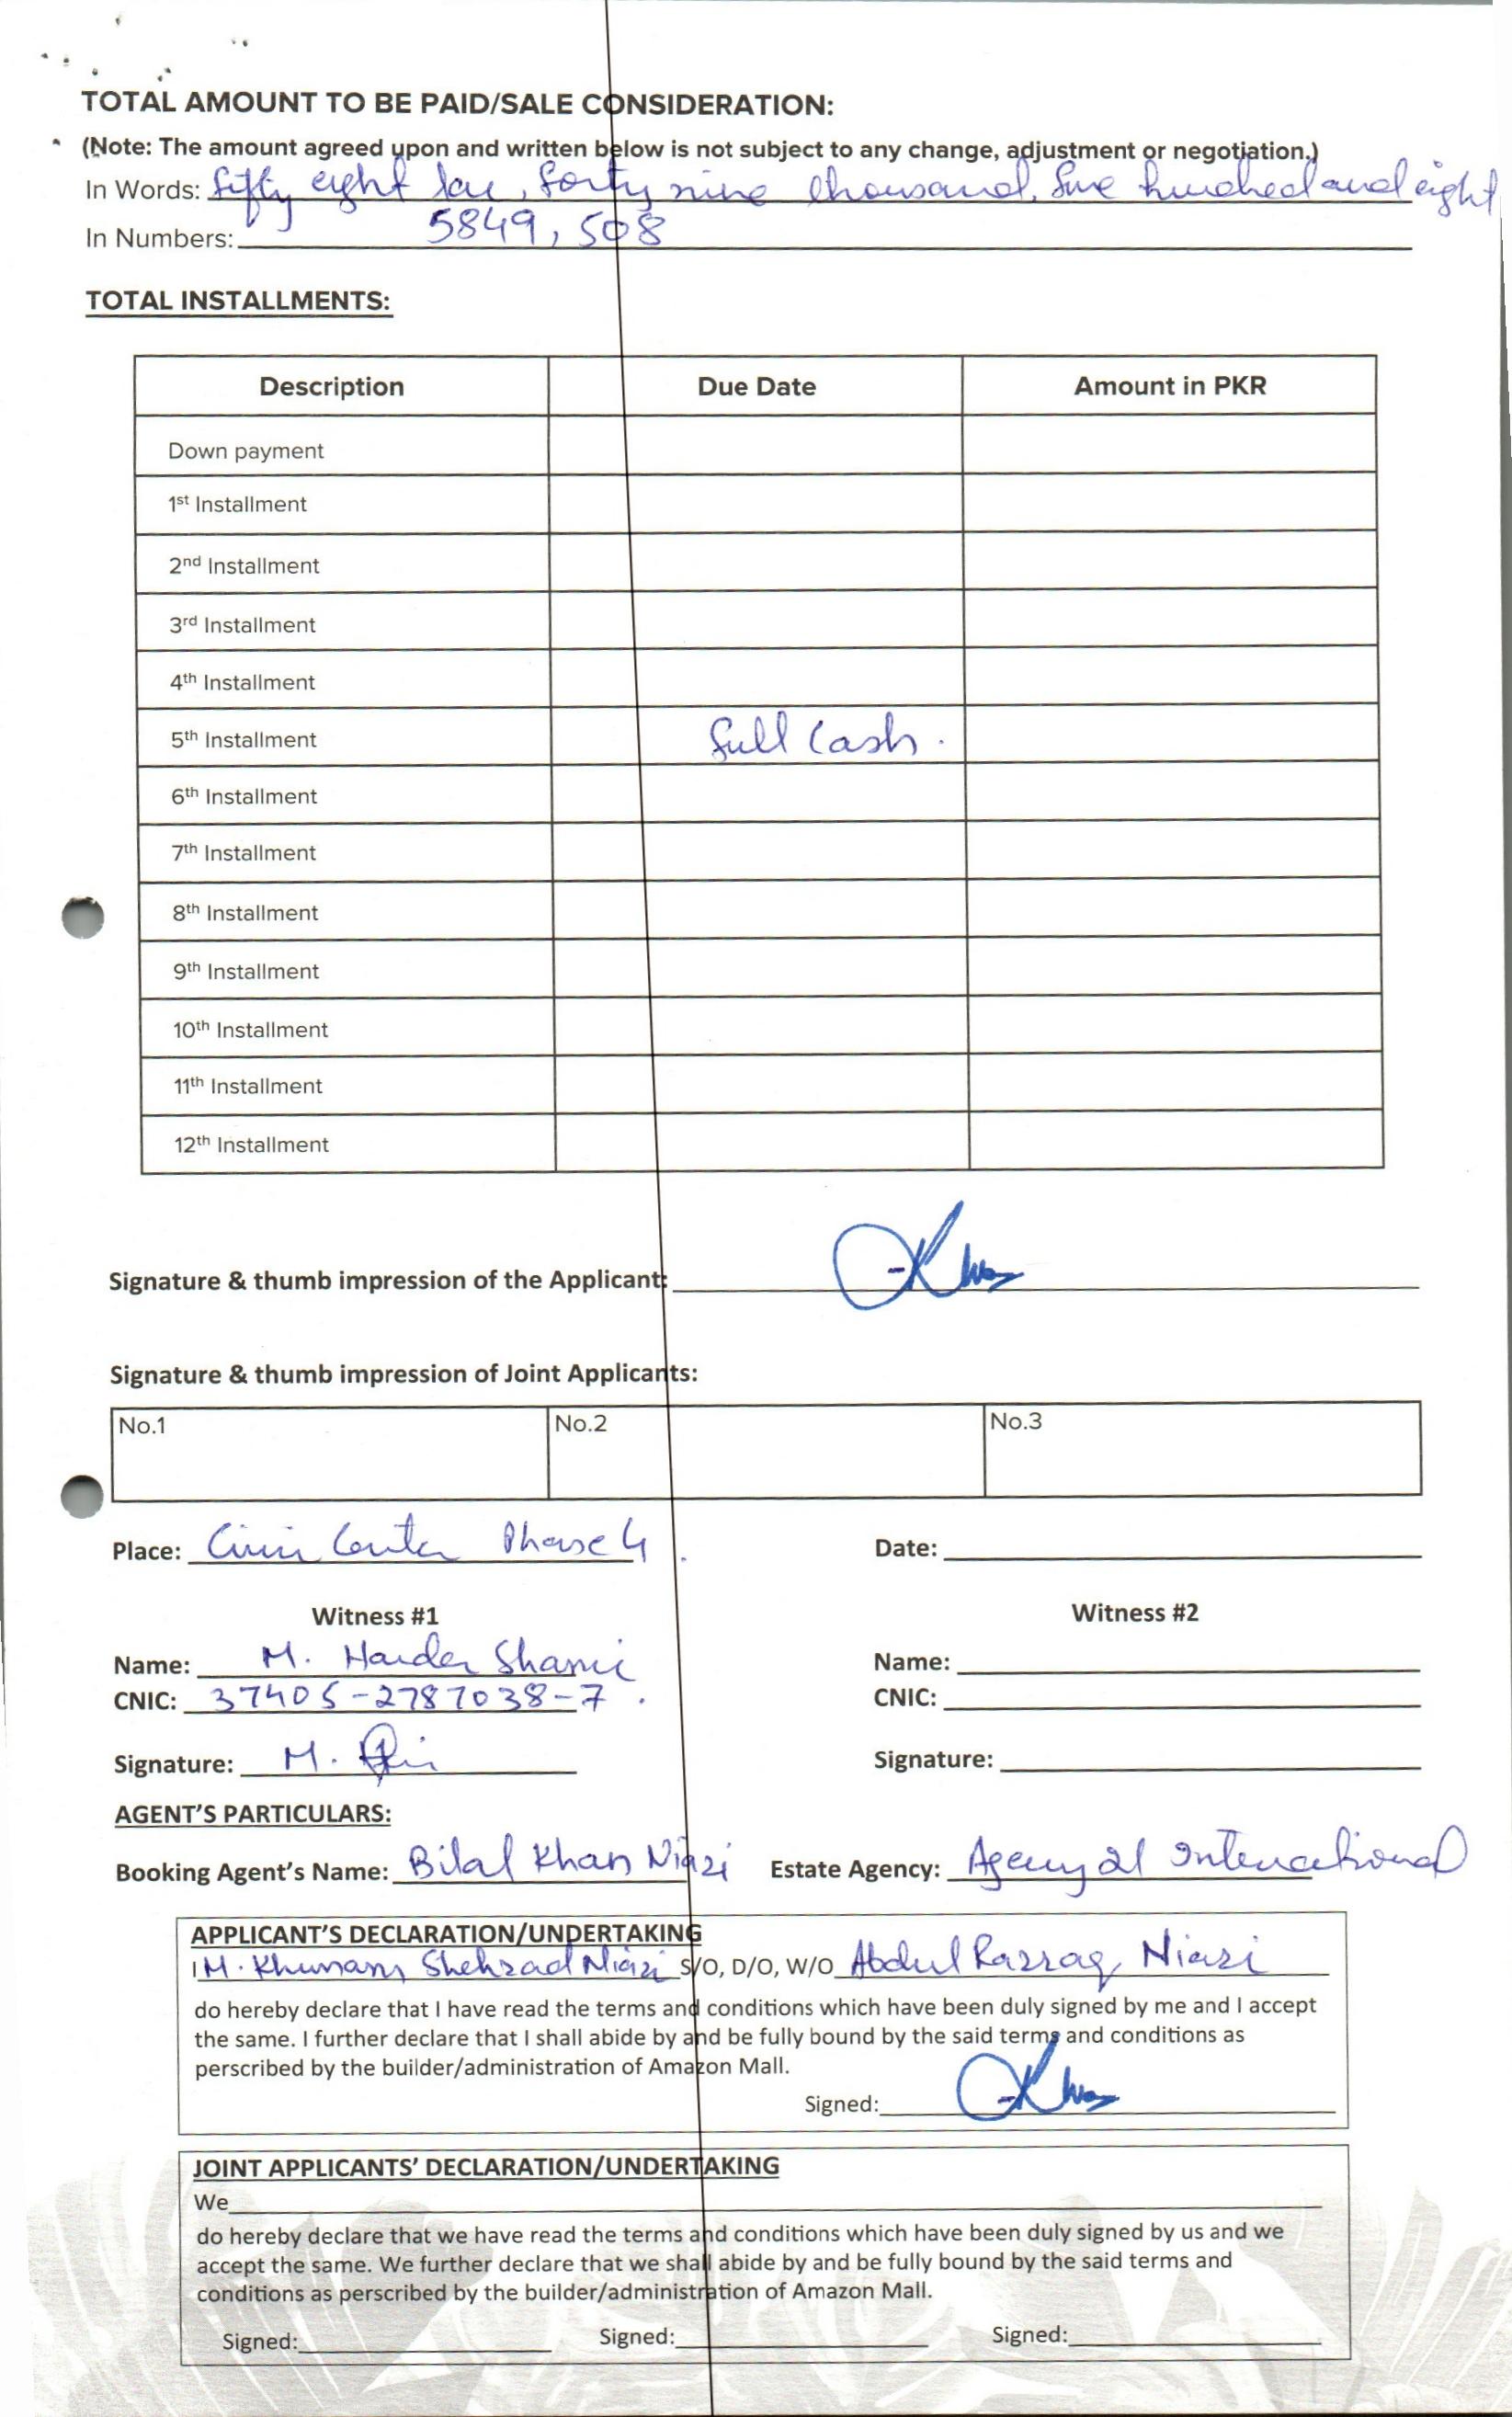 TOTAL AMOUNT TO BE PAID/SALE CONSIDERATION:
(Note: The amount agreed upon and written below is not subject to any change, adjustment or negotiation.)
In Words: fifty eight lac, forty nine thousand, five hundred and eight
In Numbers: 5849, 508
TOTAL INSTALLMENTS:
Description Due Date Amount in PKR
Down payment
1st Installment
2nd Installment
3rd Installment
4th Installment
5th Installment full Cash.
6th Installment
7th Installment
8th Installment
9th Installment
10th Installment
11th Installment
12th Installment
Signature & thumb impression of the Applicant:
Signature & thumb impression of Joint Applicants:
No.1 No.2 No.3
Place: Civic Center Phase 4. Date:
Witness #1 Witness #2
Name: M. Haider Shami Name:
CNIC: 37405-2787038-7. CNIC:
Signature: M. Signature:
AGENT'S PARTICULARS:
Booking Agent's Name: Bilal Khan Niazi Estate Agency: Agency 21 International
APPLICANT'S DECLARATION/UNDERTAKING
I M. Shehzad Niazi S/O, D/O, W/O Abdul Razzaq Niazi
do hereby declare that I have read the terms and conditions which have been duly signed by me and I accept
the same. I further declare that I shall abide by and be fully bound by the said terms and conditions as
perscribed by the builder/administration of Amazon Mall.
Signed:
JOINT APPLICANTS' DECLARATION/UNDERTAKING
We
do hereby declare that we have read the terms and conditions which have been duly signed by us and we
accept the same. We further declare that we shall abide by and be fully bound by the said terms and
conditions as perscribed by the builder/administration of Amazon Mall.
Signed: Signed: Signed: